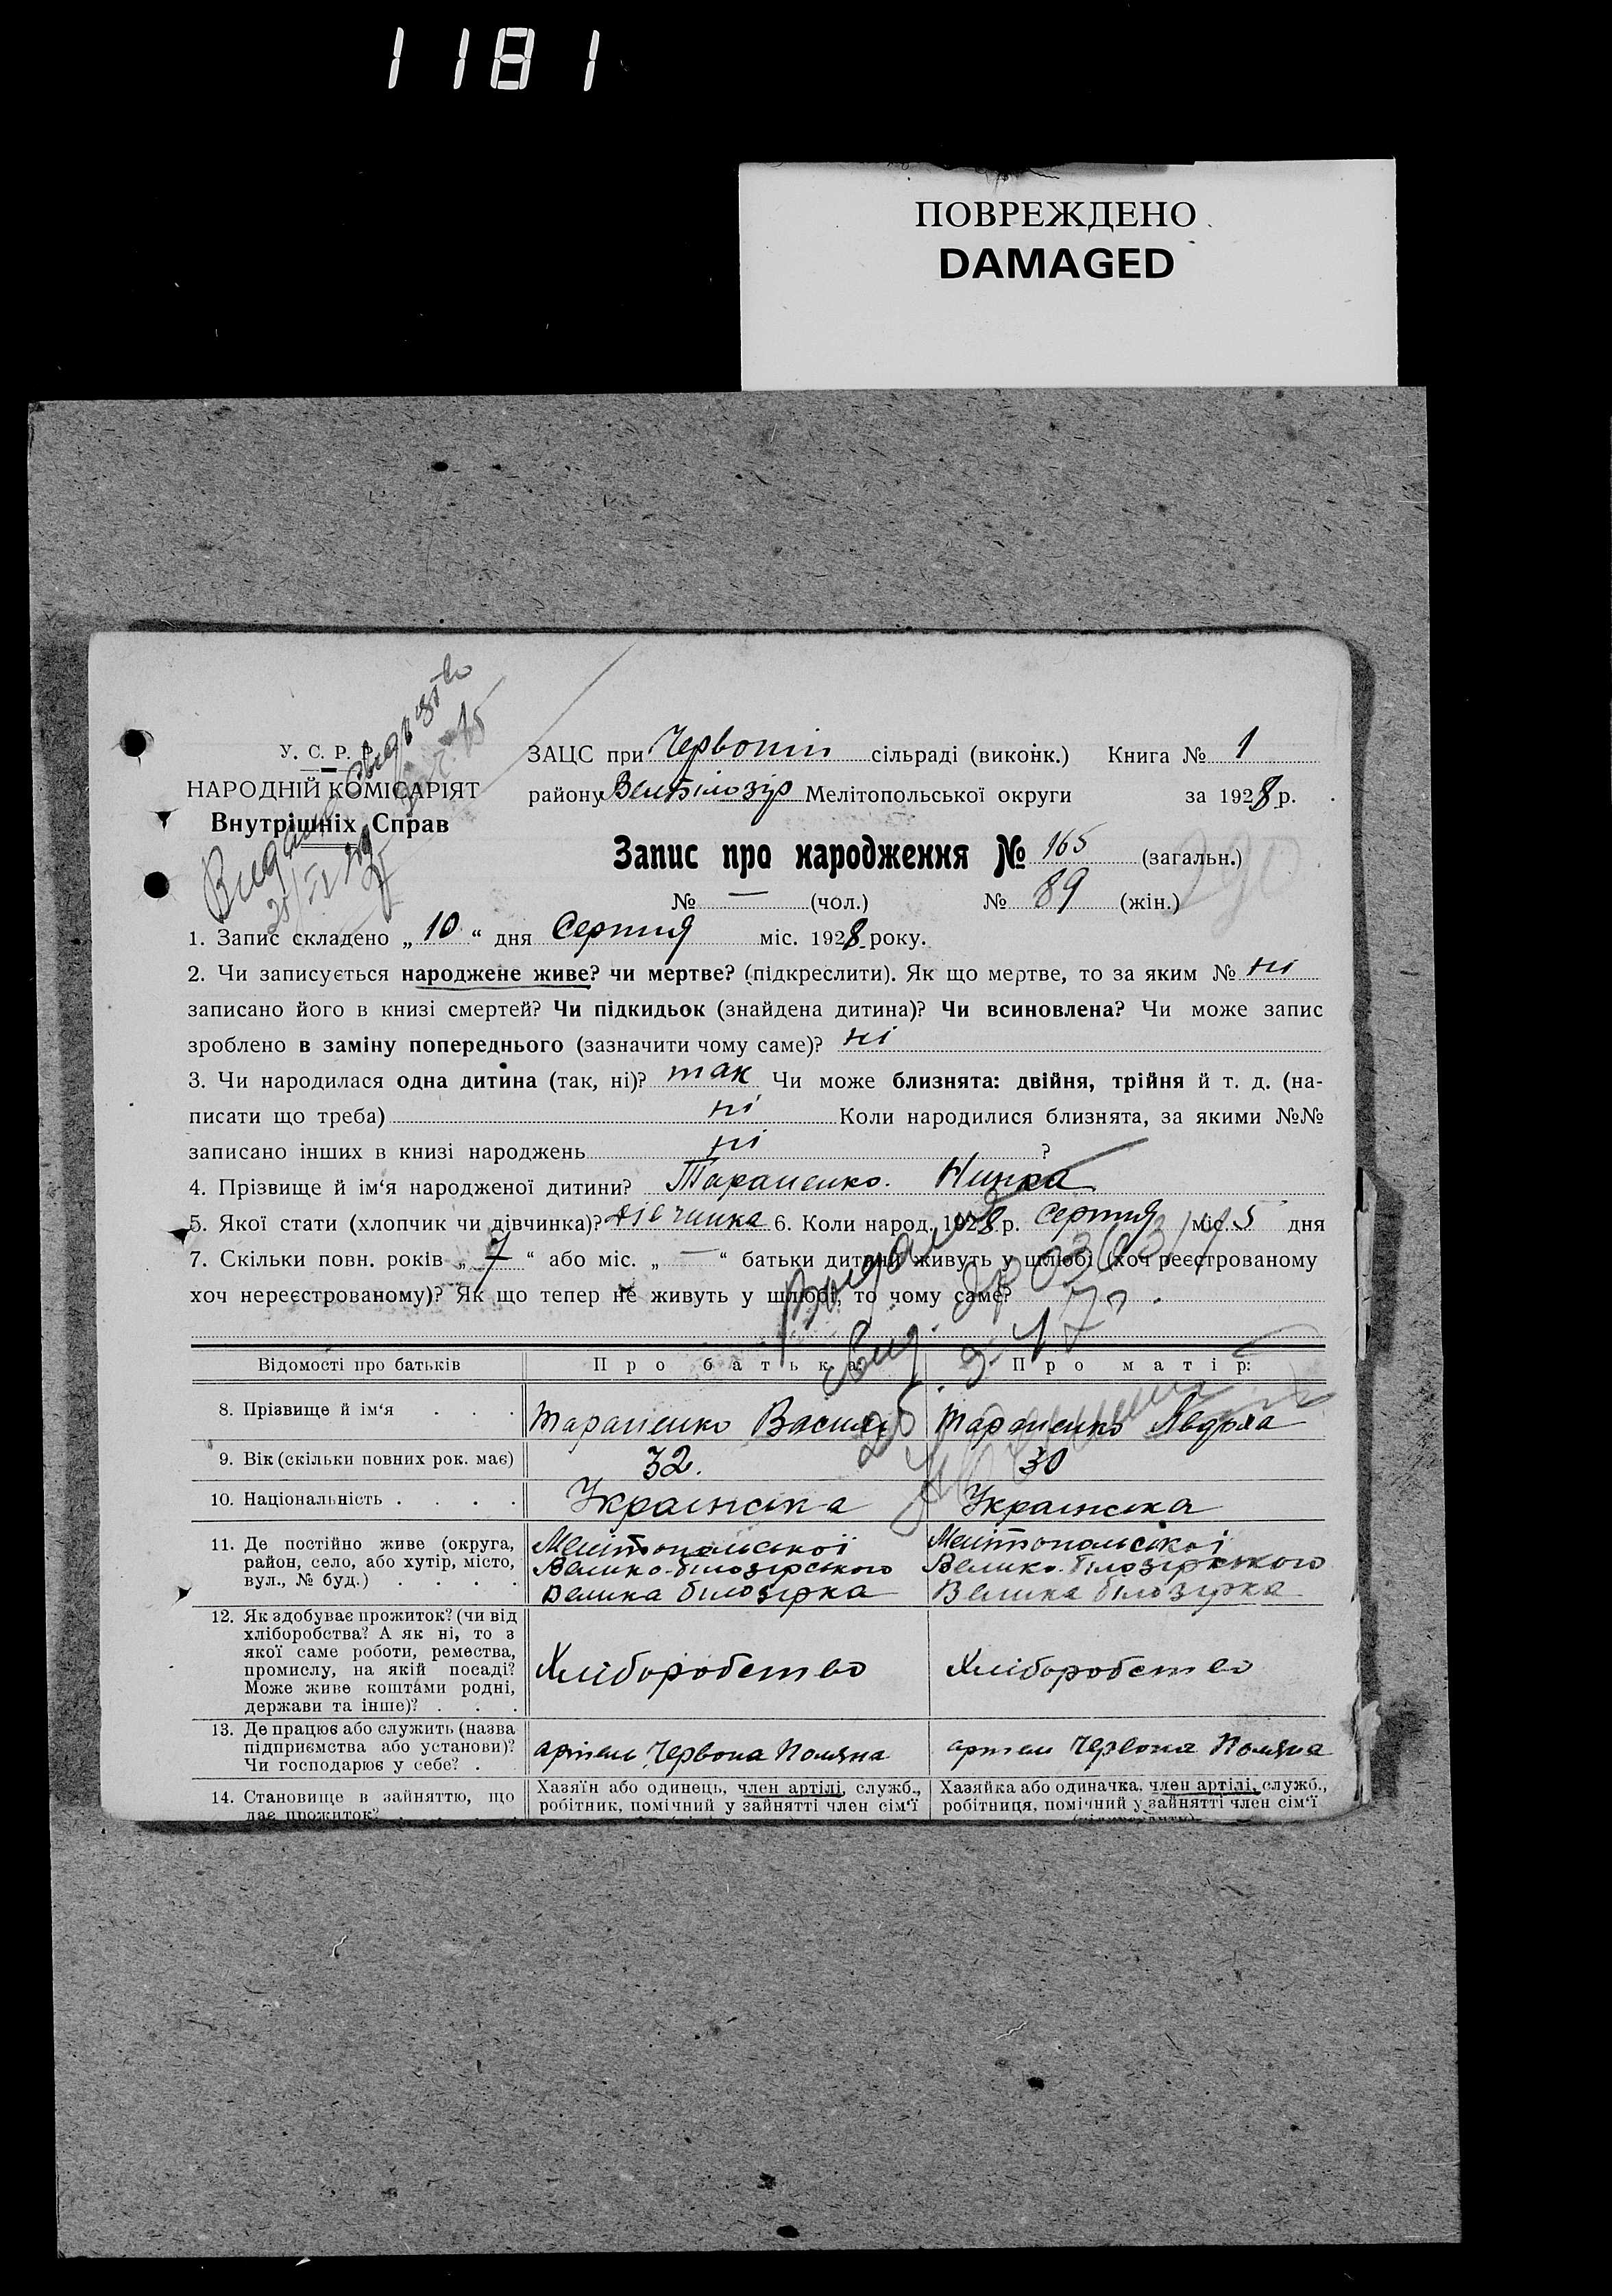 1181
ПОВРЕЖДЕНО
DAMAGED
У. С. Р. Р.
НАРОДНІЙ КОМІСАРІЯТ
Внутрішніх Справ
ЗАЦС при сільраді (виконк.) Книга № 1
району Велбілозір Мелітопольської округи за 1928 р.
Запис про народження № 165 (загальн.)
290
№ — (чол.) № 89 (жін.)
1. Запис складено „ 10 “ дня Серпня міс. 1928 року.
2. Чи записується народжене живе? чи мертве? (підкреслити). Як що мертве, то за яким № ні
записано його в книзі смертей? Чи підкидьок (знайдена дитина)? Чи всиновлена? Чи може запис
зроблено в заміну попереднього (зазначити чому саме)? ні
3. Чи народилася одна дитина (так, ні)? так Чи може близнята: двійня, трійня й т. д. (на-
писати що треба) ні Коли народилися близнята, за якими №№
записано інших в книзі народжень ні ?
4. Прізвище й ім‘я народженої дитини? Тараненко. Нинка
5. Якої стати (хлопчик чи дівчинка)? дівчинка 6. Коли народ. 1928 р. Серпня міс. 5 дня
7. Скільки повн. років „ 7 “ або міс. „ — “ батьки дитини живуть у шлюбі (хоч реєстрованому
хоч нереєстрованому)? Як що тепер не живуть у шлюбі, то чому саме?
Відомості про батьків Про батька: Про матір:
8. Прізвище й ім‘я . . . Тараненко Василь Тараненко Явдоха
9. Вік (скільки повних рок. має) 32. 30
10. Національність . . . . Українська Українська
11. Де постійно живе (округа, Мелітопольської Мелітопольської
район, село, або хутір, місто, Велико-білозірського Велико-білозірського
вул., № буд.) . . . . Велика білозірка Велика білозірка
12. Як здобуває прожиток? (чи від
хліборобства? А як ні, то з
якої саме роботи, ремества,
промислу, на якій посаді? Хліборобство Хліборобство
Може живе коштами родні,
держави та інше)? . . .
13. Де працює або служить (назва
підприємства або установи)? артель Червона Поляна артель Червона Поляна
Чи господарює у себе? .
14. Становище в зайняттю, що Хазяїн або одинець, член артілі, служб., Хазяйка або одиначка, член артілі, служб.,
дає прожиток? робітник, помічний у зайнятті член сім‘ї робітниця, помічний у зайнятті член сім‘ї